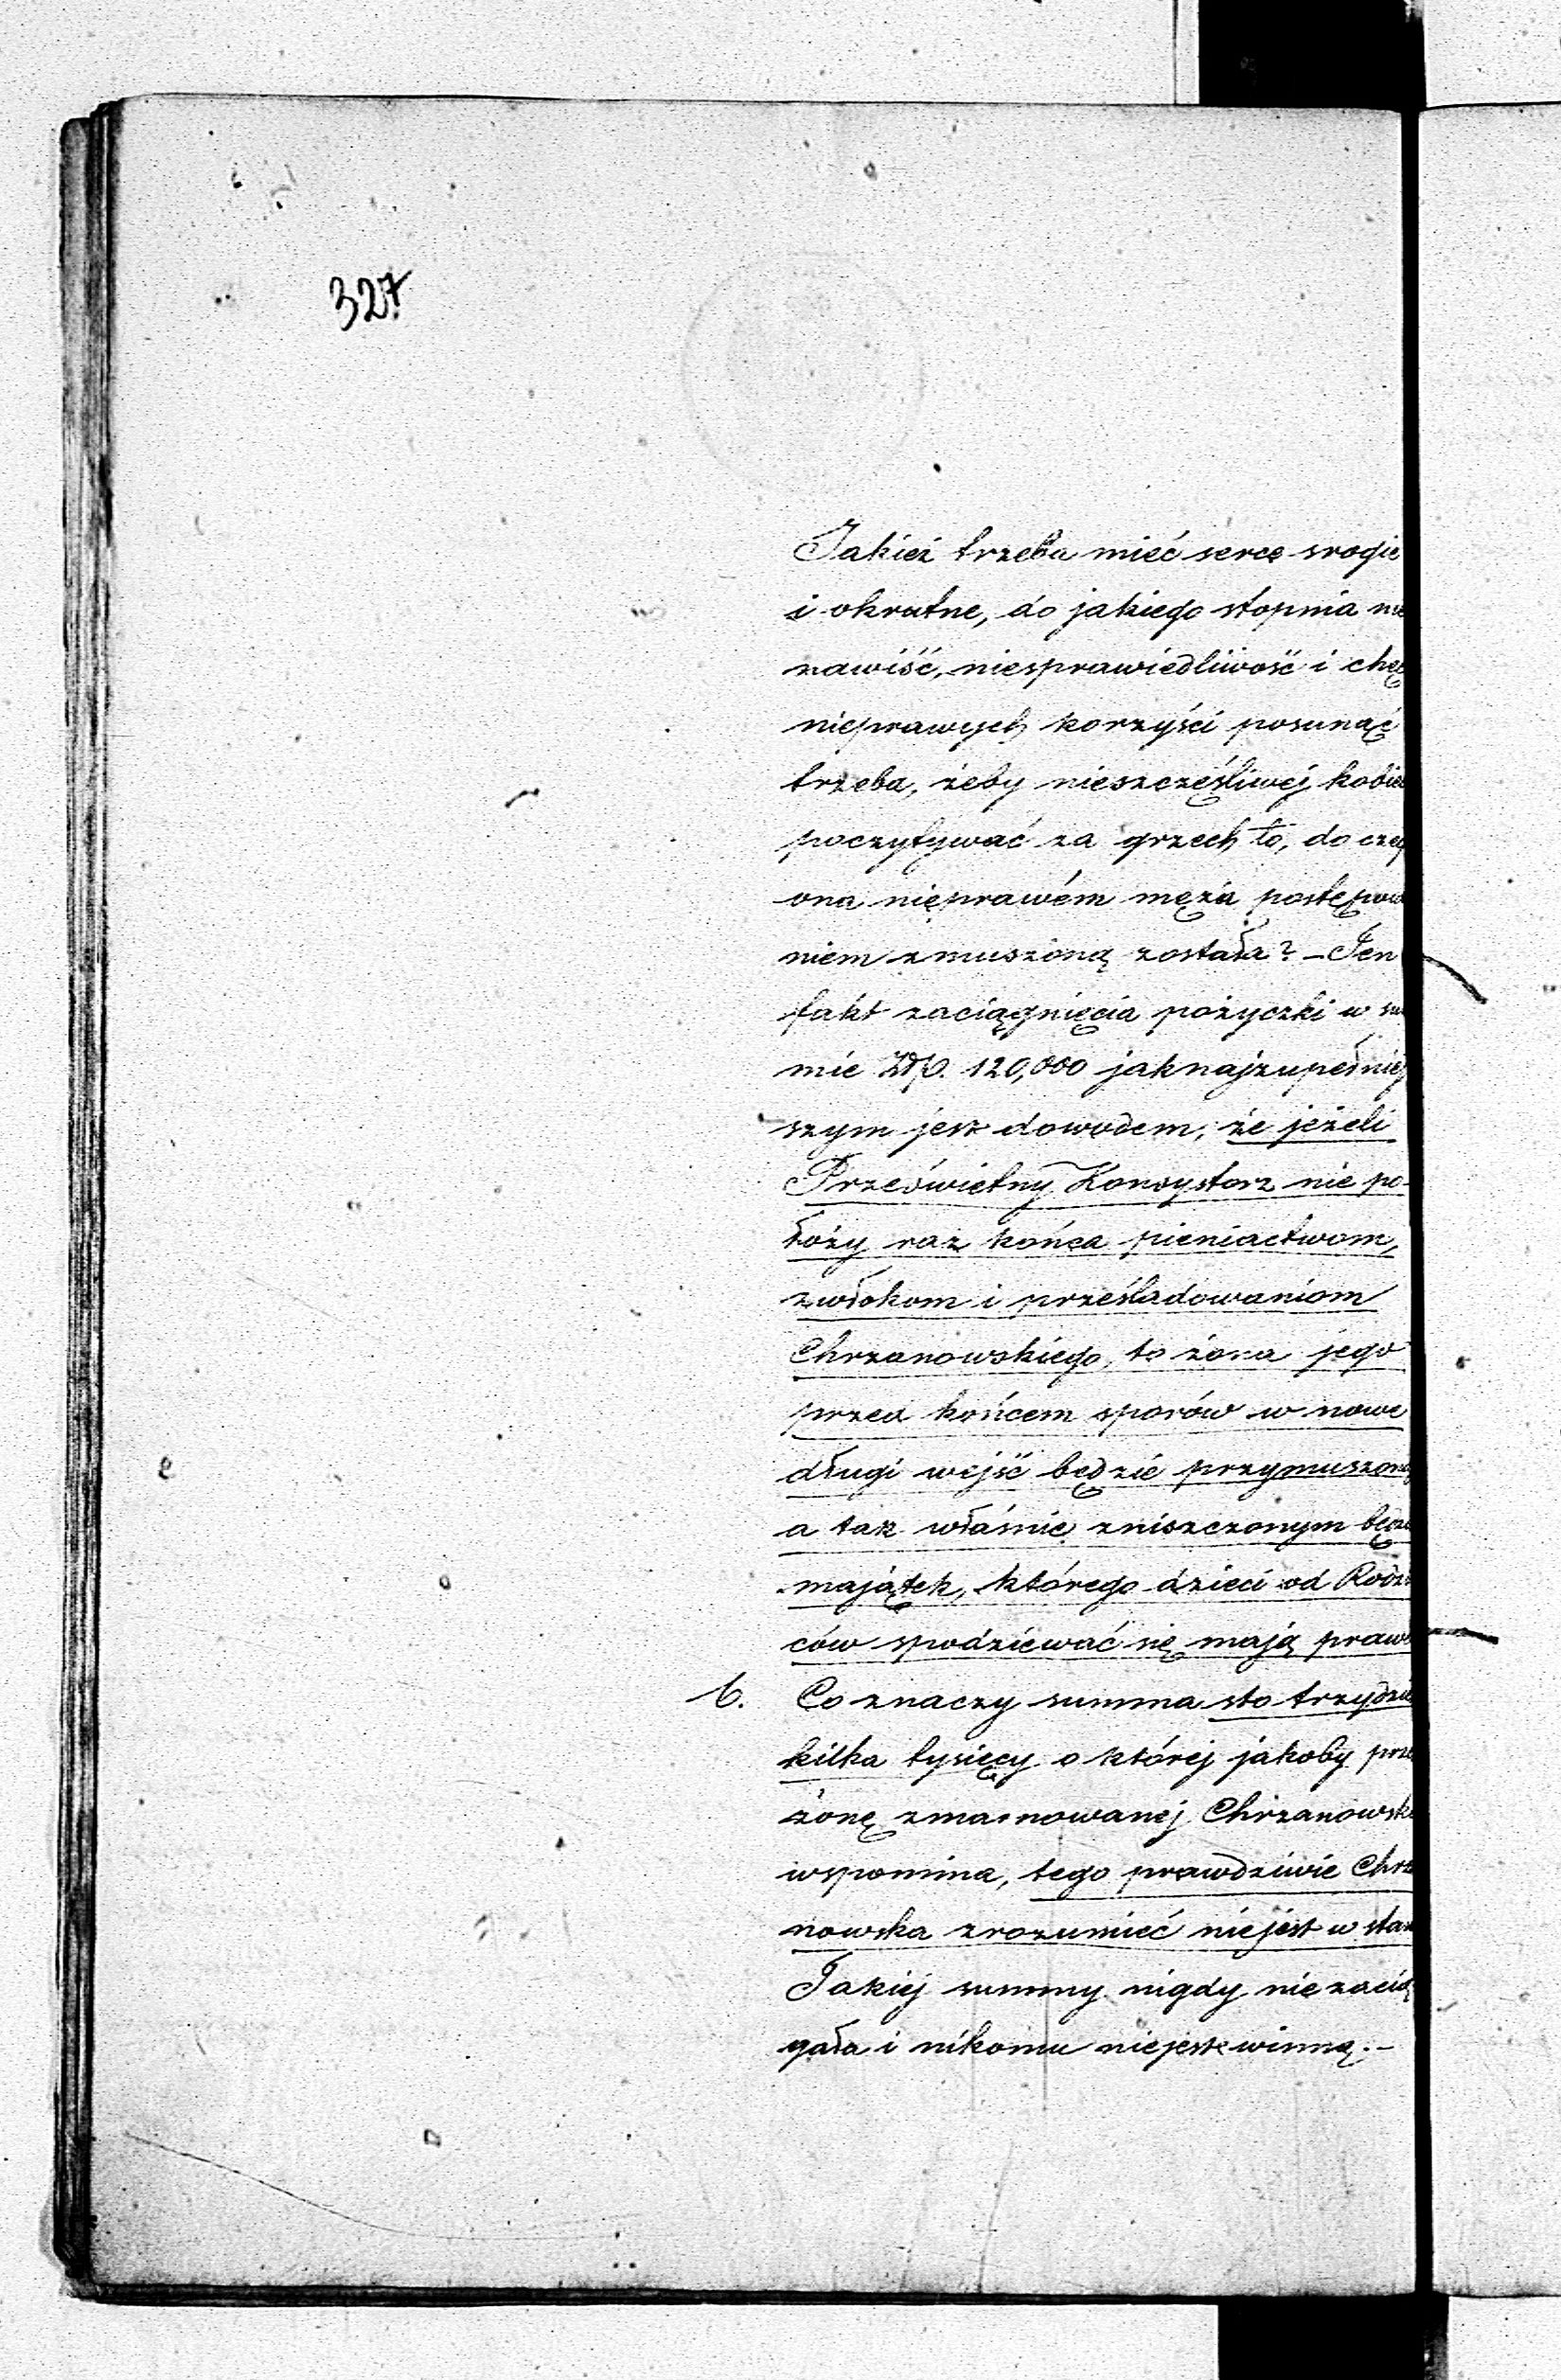 327
Jakież trzeba mieć serce srogie
i okrutne, do jakiego stopnia nie
nawiść, niesprawiedliwość i chęć
nieprawych korzyści posunąć
trzeba, żeby nieszczęśliwej kobie
poczytywać za grzech to, do czeg
ona nieprawém męża postępowa
niem zmuszoną została? – Ten
fakt zaciągnięcia pożyczki w su
mie Złp. 120,000 jaknajzupełniej
szym jest dowodem, że jeżeli
Prześwietny Konsystorz nie po-
łoży raz końca pieniactwom,
zwłokom i prześladowaniom
Chrzanowskiego, to żona jego
przed końcem sporów w nowe
długi wejść będzie przymuszoną
a tak właśnie zniszczonym będzie
majątek, którego dzieci od Rodzi
ców spodziewać się mają prawo
6. Co znaczy summa sto trzydzie
kilka tysięcy o której jakoby prze
żonę zmarnowanej Chrzanowski
wspomina, tego prawdziwie Chrza
nowska zrozumieć niejest w stan
Takiej summy nigdy nie zacią
gała i nikomu niejest winną. –